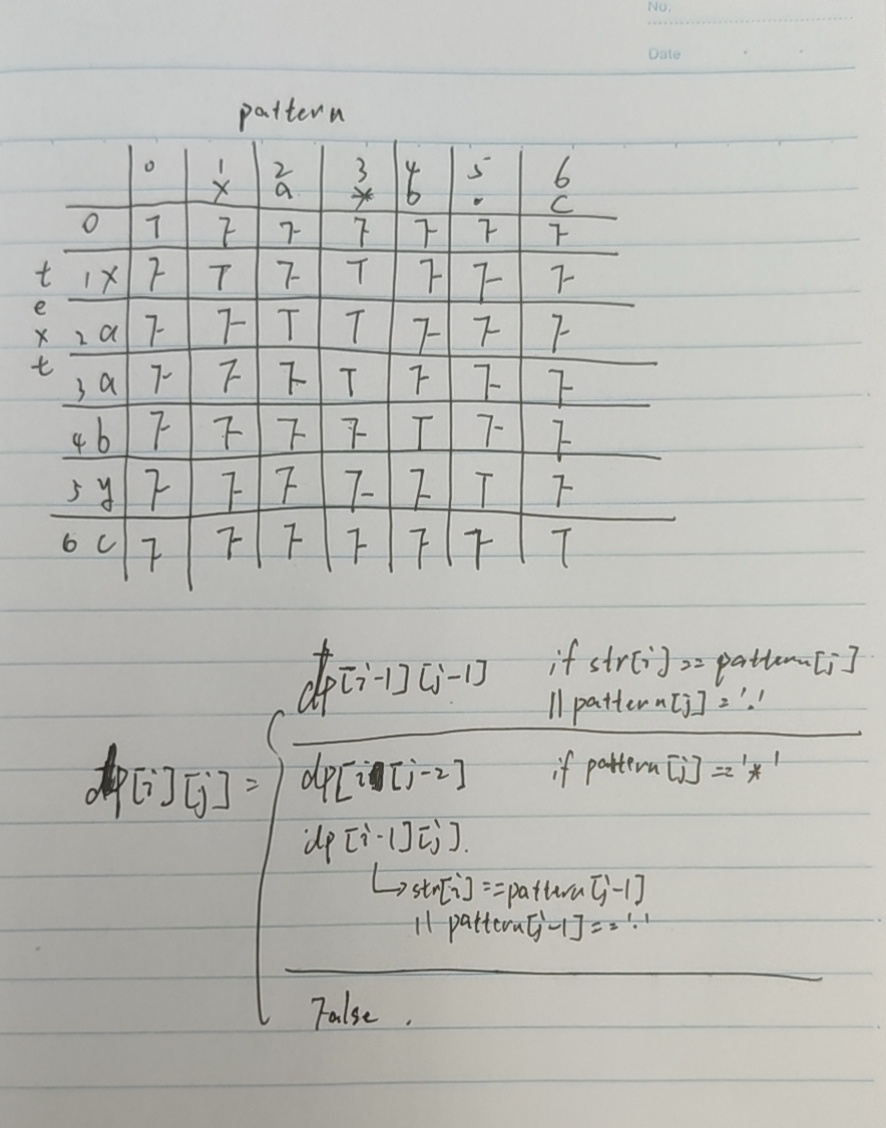 No.
Date
pattern
0 1 2 3 4 5 6
x a * b . c
text
0 T F F F F F F
1 x F T F T F F F
2 a F F T T F F F
3 a F F F T F F F
4 b F F F F T F F
5 y F F F F F T F
6 c F F F F F F T
dp[i-1][j-1] if str[i] == pattern[j]
|| pattern[j] = '.'
dp[i][j] =
dp[i][j-2] if pattern[j] == '*'
dp[i-1][j].
↳ str[i] == pattern[j-1]
|| pattern[j-1] == '.'
False .